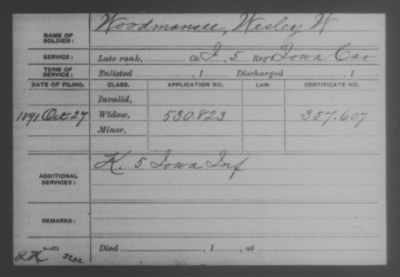 NAME OF SOLDIER: Woodmansee, Wesley W
SERVICE: Late rank, Co. I, 5 Reg Iowa Cav
TERM OF SERVICE: Enlisted , 1 Discharged , 1
DATE OF FILING. CLASS. APPLICATION NO. LAW. CERTIFICATE NO.
Invalid,
1891 Oct 27 Widow, 530.823 357.607
Minor,
ADDITIONAL SERVICES: K. 5 Iowa Inf
REMARKS:
Died , 1 , at